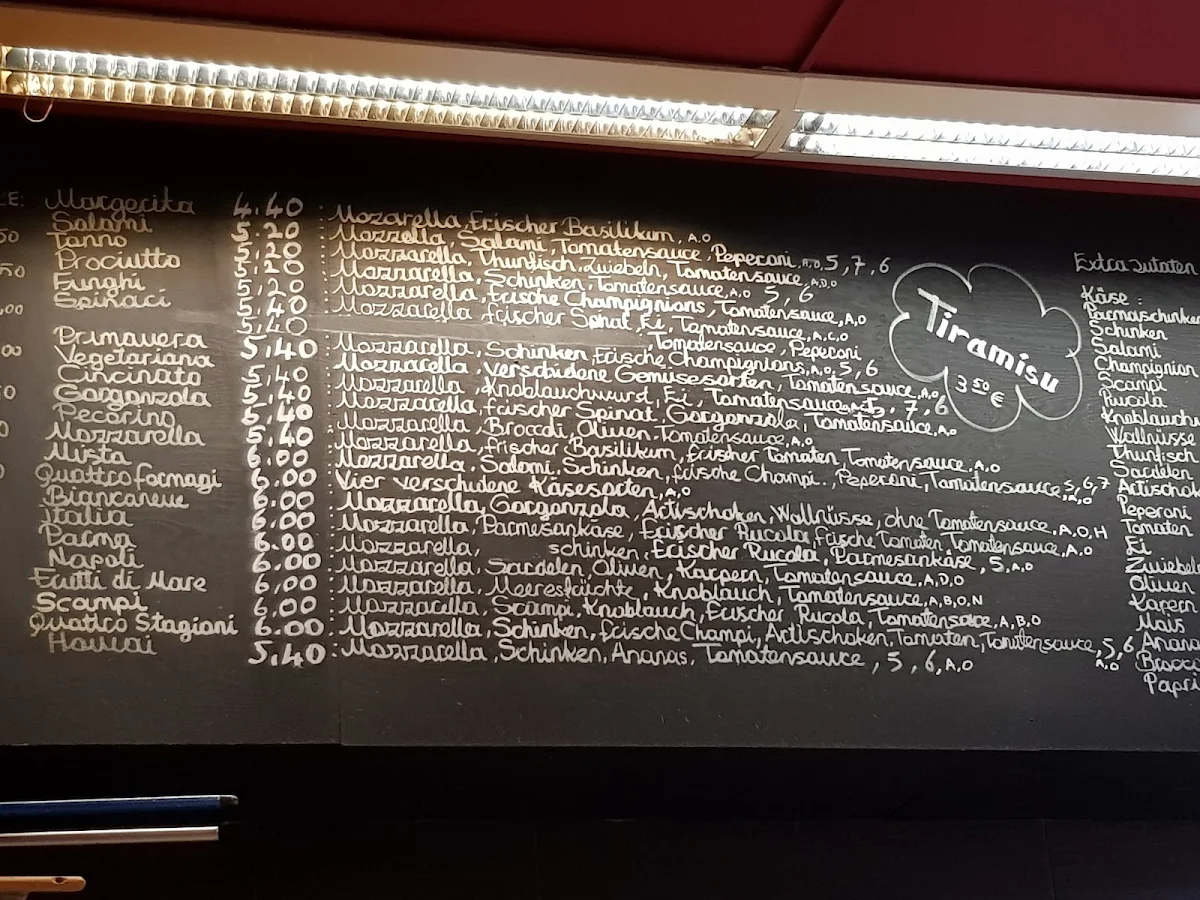 Margerita 4.40 : Mozarella, Frischer Basilikum, A,O
Salami 5.20 : Mozzella, Salami, Tomatensauce, Peperoni, A,O, 5, 7, 6
Tonno 5.20 : Mozzarella, Thunfisch, Zwiebeln, Tomatensauce, A,D,O
Prociutto 5.20 : Mozzarella, Schinken, Tomatensauce, A,O 5, 6
Funghi 5.20 : Mozzarella, frische Champignions, Tomatensauce, A,O
Spinaci 5.40 : Mozzarella, frischer Spinat, Ei, Tomatensauce, A,C,O
5.40 , Tomatensauce, Peperoni
Primavera 5.40 : Mozzarella, Schinken, Frische Champignions, A,O, 5, 6
Vegetariana 5.40 : Mozzarella, verschidene Gemüsesorten, Tomatensauce, A,O
Cincinato 5.40 : Mozzarella, Knoblauchwurst, Ei, Tomatensauce, 5, 7, 6
Gorgonzola 5.40 : Mozzarella, frischer Spinat, Gorgonzola, Tomatensauce, A,O
Pecorino 5.40 : Mozzarella, Broccoli, Oliven, Tomatensauce, A,O
Mozzarella 5.40 : Mozzarella, frischer Basilikum, frischer Tomaten, Tomatensauce, A,O
Mista 6.00 : Mozzarella, Salami, Schinken, frische Champi.., Peperoni, Tomatensauce, 5, 6, 7
Quattro formagi 6.00 : Vier verschidene Käsesorten, A,O
Biancaneve 6.00 : Mozzarella, Gorgonzola, Artischoken, Wallnüsse, ohne Tomatensauce, A,O,H
Italia 6.00 : Mozzarella, Parmesankäse, Frischer Rucola, frische Tomaten, Tomatensauce, A,O
Parma 6.00 : Mozzarella, schinken, Frischer Rucola, Parmesankäse, 5, A,O
Napoli 6.00 : Mozzarella, Sardelen, Oliven, Karpern, Tomatensauce, A,D,O
Frutti di Mare 6.00 : Mozzarella, Meeresfrüchte, Knoblauch, Tomatensauce, A,B,O,N
Scampi 6.00 : Mozzarella, Scampi, Knoblauch, Frischer Rucola, Tomatensauce, A,B,O
Quattro Stagioni 6.00 : Mozzarella, Schinken, frische Champi, Artischoken, Tomaten, Tomatensauce, 5, 6, A,O
Hawai 5.40 : Mozzarella, Schinken, Ananas, Tomatensauce, 5, 6, A,O
Tiramisu
3 50 €
Extra Zutaten
Käse :
Parmaschinken
Schinken
Salami
Champignion
Scampi
Rucola
Knoblauch
Wallnüsse
Thunfisch
Sardelen
Artischok
Peperoni
Tomaten
Ei
Zwiebeln
Oliven
Kapern
Mais
Anana
Brocc
Papri